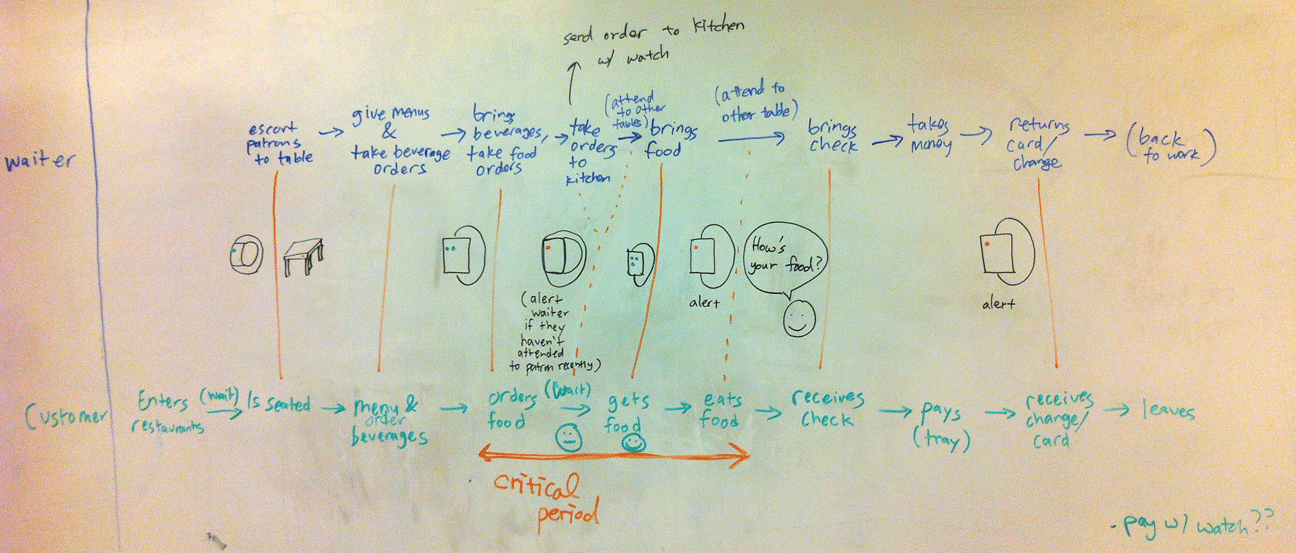 send order to kitchen
w/ watch
Waiter
escort
patrons
to table
give menus
&
take beverage
orders
brings
beverages,
take food
orders
take
orders
to
kitchen
(attend
to other
tables)
brings
food
(attend to
other table)
brings
check
takes
money
returns
card/
change
(back
to work)
(alert
waiter
if they
haven't
attended
to patron recently)
alert
How's
your food?
alert
Customer
Enters
restaurants
(wait)
Is seated
menu &
order
beverages
orders
food
(wait)
gets
food
eats
food
receives
check
pays
(tray)
receives
change/
card
leaves
critical
period
- pay w/ watch??